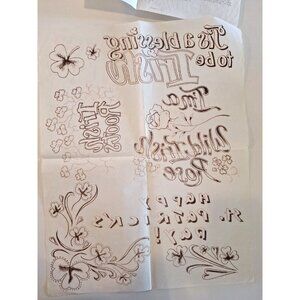 'Tis a blessing
to be IRISH
I'm a
Wild Irish
Rose
Irish
HAPPY
St.
PATRICK'S
DAY!